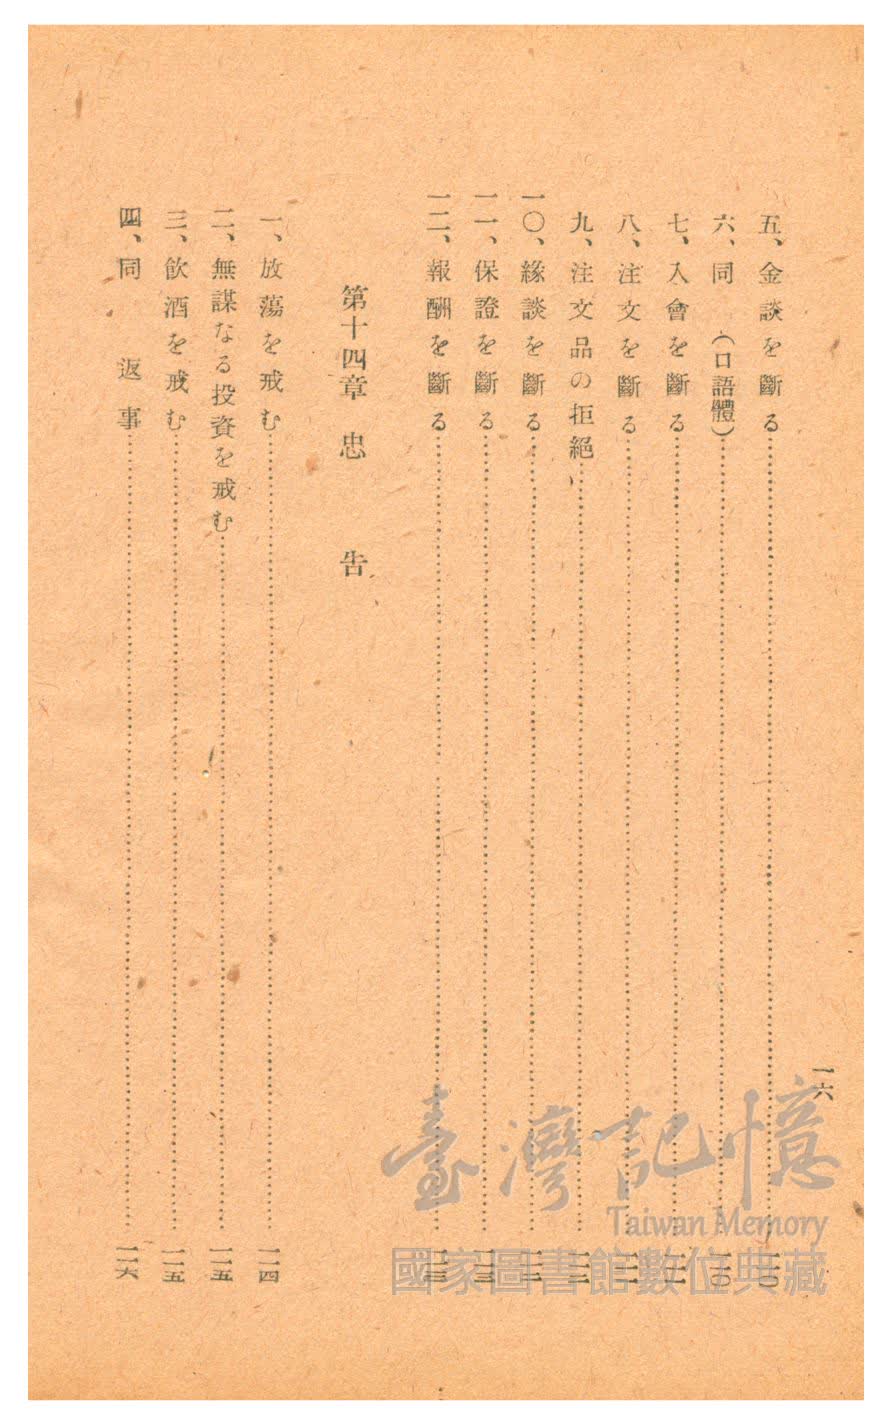 一六
五、金談を斷る……一一〇
六、同　（口語體）……一一〇
七、入會を斷る……
八、注文を斷る……
九、注文品の拒絕……
一〇、緣談を斷る……
一一、保證を斷る……
一二、報酬を斷る……
第十四章　忠　告
一、放蕩を戒む……一一四
二、無謀なる投資を戒む……一一五
三、飮酒を戒む……一一五
四、同　返事……一一六
臺灣記憶
Taiwan Memory
國家圖書館數位典藏